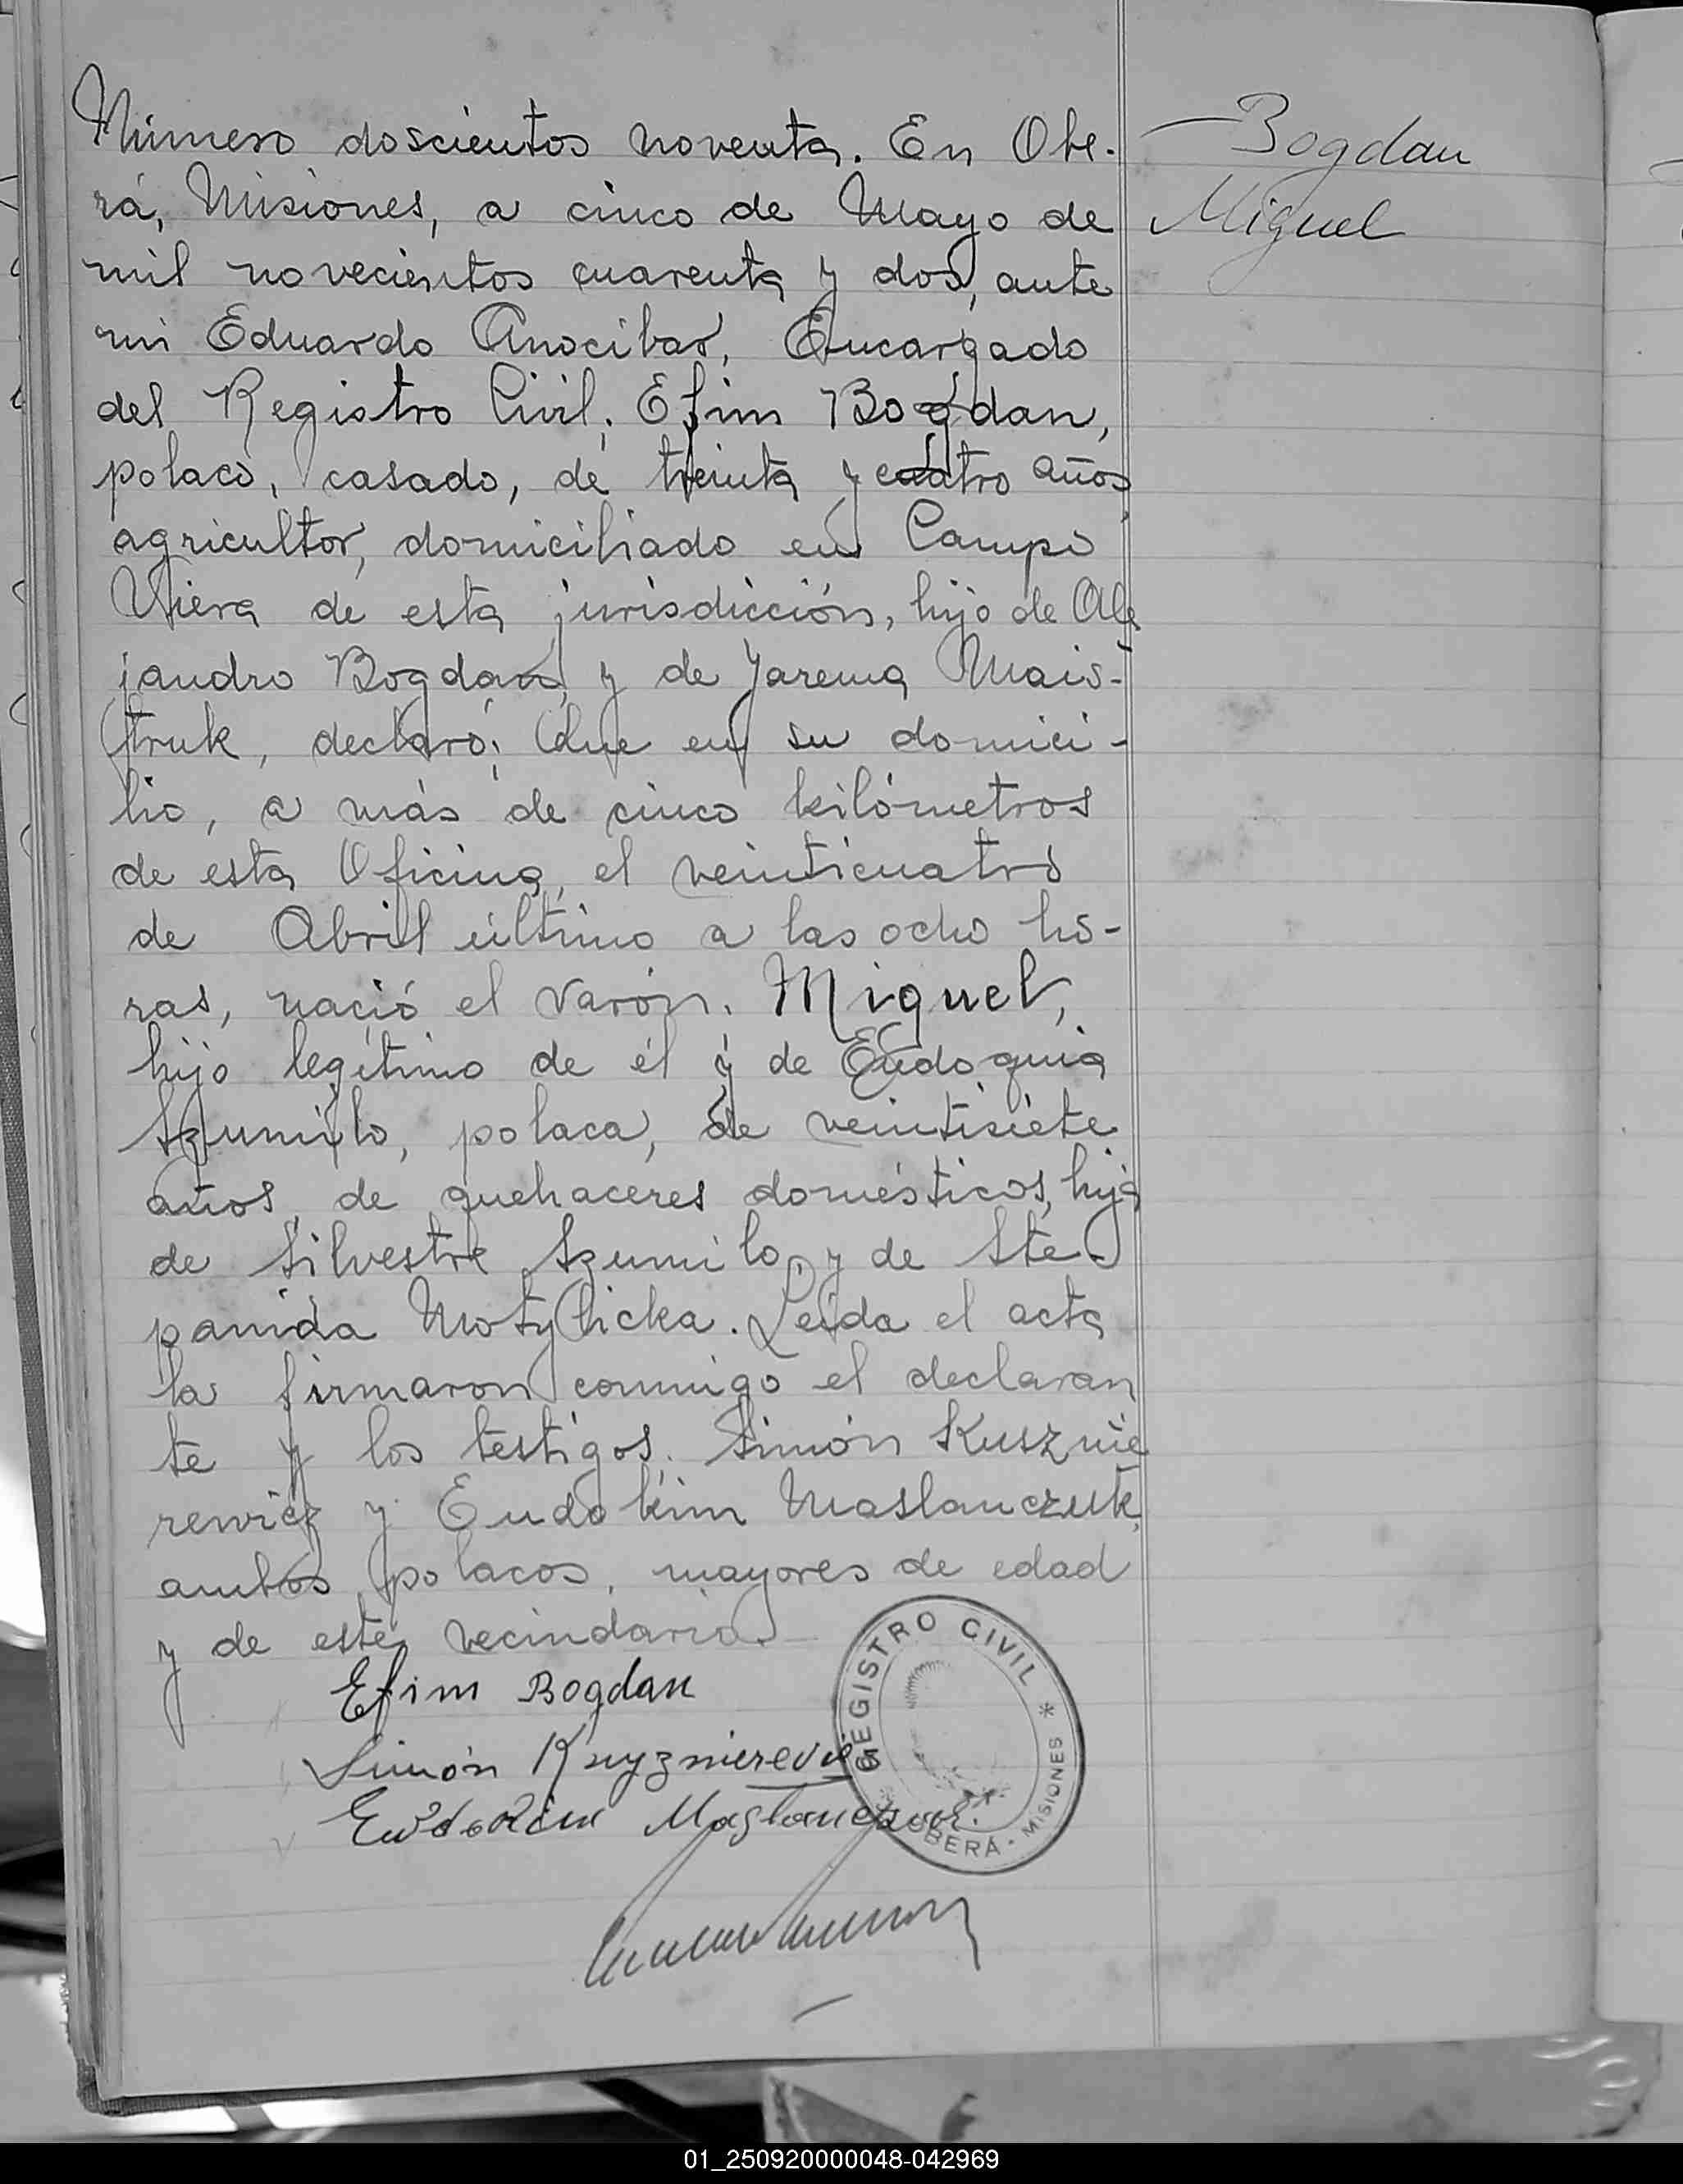 Número doscientos noventa. En Obe-
rá, Misiones, a cinco de Mayo de
mil novecientos cuarenta y dos, ante
mi Eduardo Anocibar, Encargado
del Registro Civil; Efim Bogdan,
polaco, casado, de treinta y cuatro años,
agricultor, domiciliado en Campo
Viera de esta jurisdicción, hijo de Ale
jandro Bogdan, y de Jarema Mais-
truk, declaró; Que en su domici-
lio, a más de cinco kilómetros
de esta Oficina, el veinticuatro
de Abril último a las ocho ho-
ras, nació el varón. Miguel,
hijo legítimo de él y de Eudoquia
Szumilo, polaca, de veintisiete
años, de quehaceres domésticos, hija
de Silvestre Szumilo, y de Ste-
panida Motylicka. Leída el acta
la firmaron conmigo el declaran
te y los testigos. Simón Kusznie
rewicz y Eudokim Maslanczuk,
ambos polacos, mayores de edad
y de este vecindario.
Efim Bogdan
Simón
REGISTRO CIVIL * OBERÁ - MISIONES
Bogdan
Miguel
01_250920000048-042969